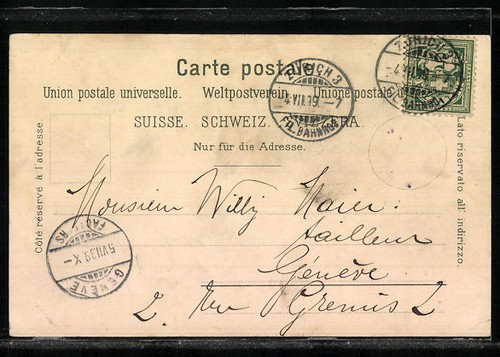 Carte postale.
Union postale universelle. Weltpostverein. Unione postale
SUISSE. SCHWEIZ.
Nur für die Adresse.
Côté réservé à l'adresse.
Lato riservato all' indirizzo.
ZÜRICH 3
FIL. BAHNHOF
ZÜRICH
FIL. BAHNHOF
GENÈVE
Monsieur Willy Maier
tailleur
Genève
2. Rue Grenus 2